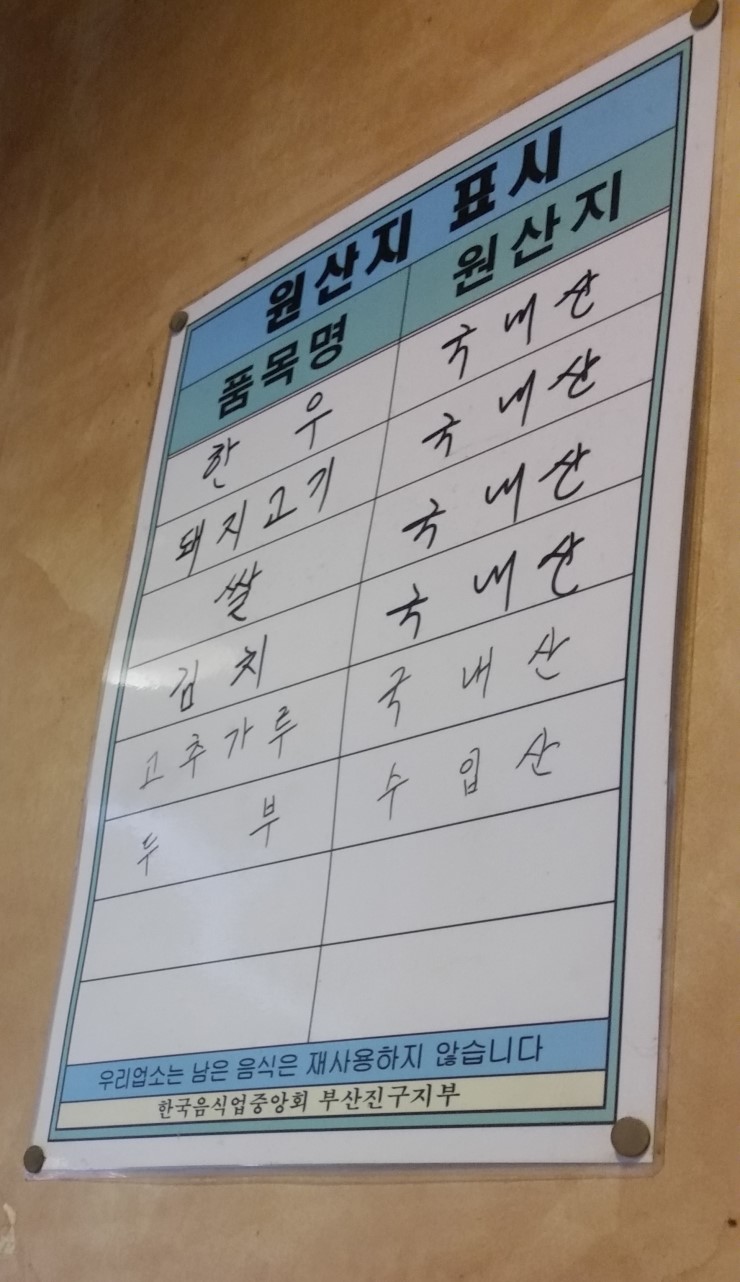 원산지 표시
품목명 원산지
한우 국내산
돼지고기 국내산
쌀 국내산
김치 국내산
고추가루 국내산
두부 수입산
우리업소는 남은 음식은 재사용하지 않습니다
한국음식업중앙회 부산진구지부